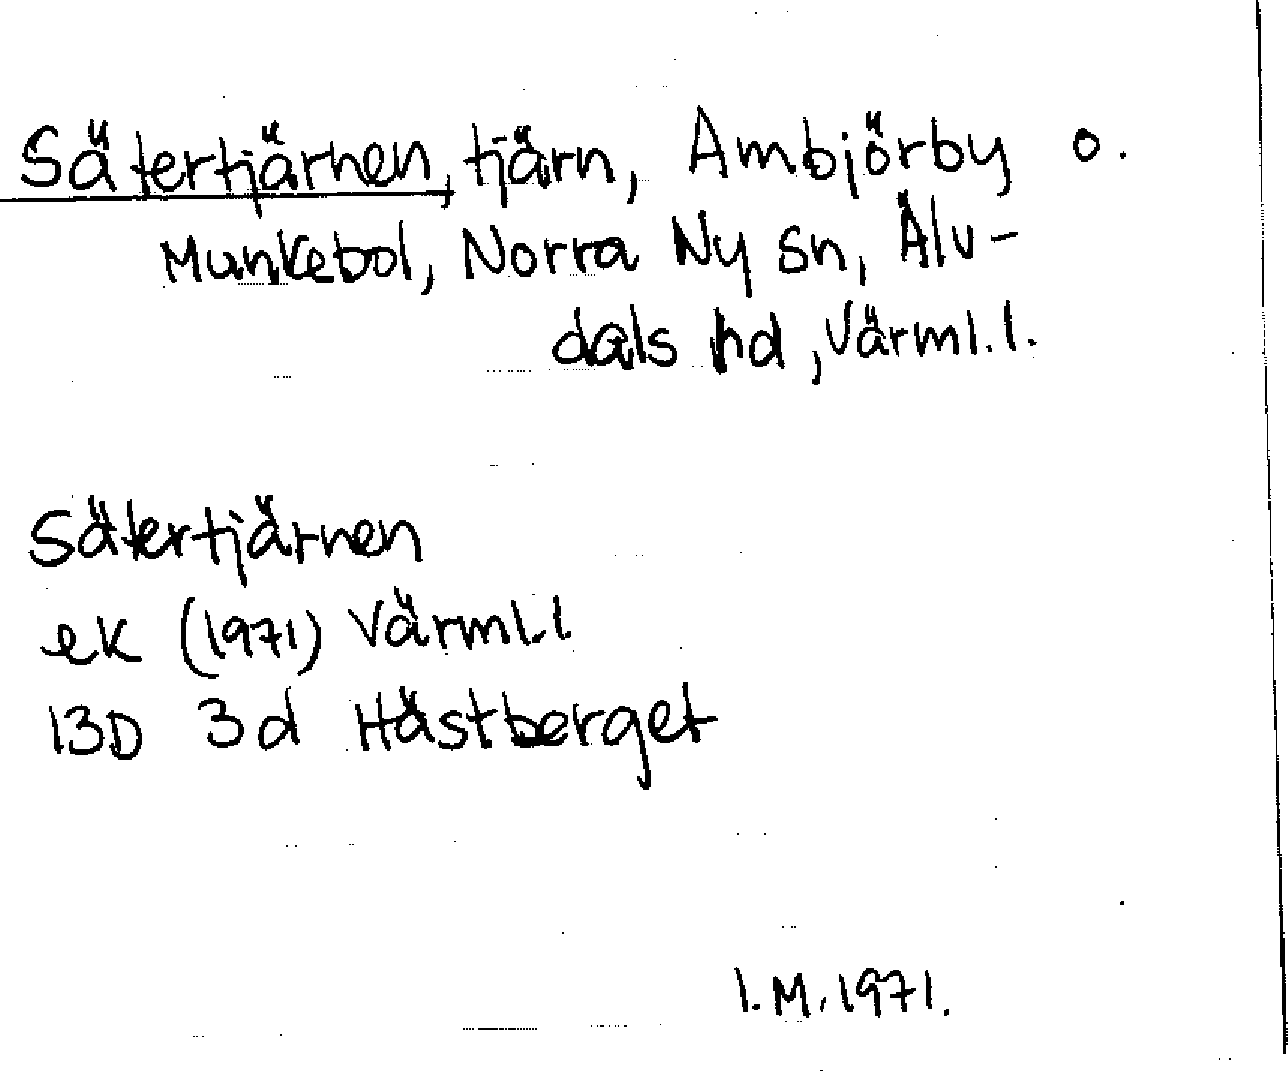 Sätertjärnen, tjärn, Ambjörby o.
Munkebol, Norra Ny sn, Älv-
dals hd, Värml.l.
Sätertjärnen
ek (1971) Värml.l
13D 3d Hästberget
I.M. 1971.